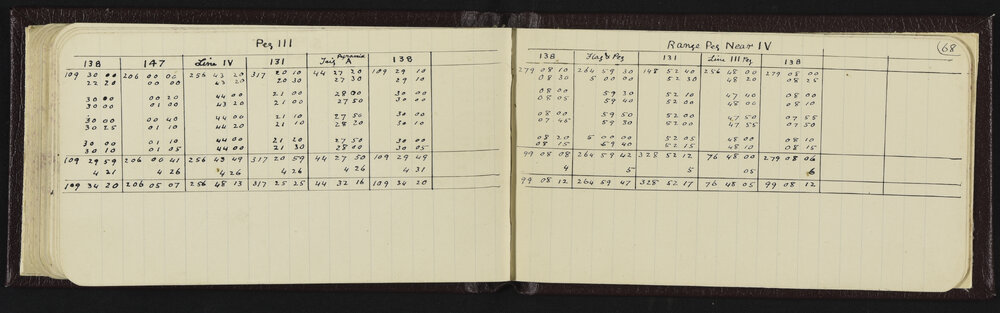 Peg III
138 147 Line IV 131 Taig Pyramid A 138
109 30 00 206 00 00 256 43 20 317 20 10 44 27 20 109 29 10
22 20 00 00 43 20 20 30 27 30 29 10
30 00 00 20 44 00 21 00 28 00 30 00
30 00 01 00 43 20 21 00 27 50 30 00
30 00 00 40 44 00 21 10 27 50 30 00
30 25 01 10 44 20 21 10 28 20 30 10
30 00 01 10 44 00 21 20 27 50 30 00
30 10 01 05 44 00 21 30 28 00 30 05
109 29 59 206 00 41 256 43 49 317 20 59 44 27 50 109 29 49
4 21 4 26 4 26 4 26 4 26 4 31
109 34 20 206 05 07 256 48 13 317 25 25 44 32 16 109 34 20
Range Peg Near IV
68
138 Flag & Peg 131 Line III Peg 138
279 08 10 264 59 30 148 52 40 256 48 00 279 08 00
08 30 5 00 00 52 30 48 20 08 25
08 00 59 30 52 10 47 40 08 00
08 05 59 40 52 00 48 00 08 10
08 00 59 50 52 00 47 50 07 55
07 45 59 30 52 00 47 55 07 50
08 20 5 00 00 52 05 48 00 08 10
08 15 59 40 52 15 48 10 08 15
99 08 08 264 59 42 328 52 12 76 48 00 279 08 06
4 5 5 05 6
99 08 12 264 59 47 328 52 17 76 48 05 99 08 12